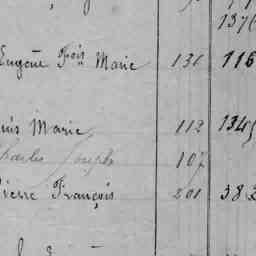 137
Eugène Fois Marie 131 116
Louis Marie 112 134
Charles Joseph 107
Pierre François 201 383